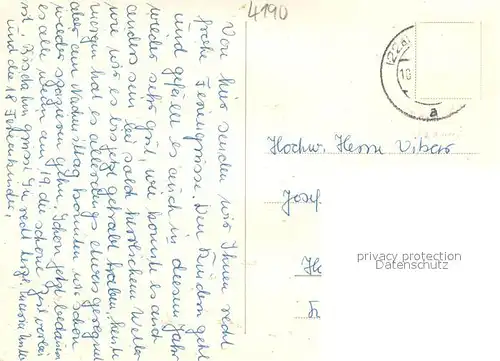 4190
Von hier senden wir Ihnen recht
frohe Feriengrüsse. Den Kindern geht
und gefällt es auch in diesem Jahr
wieder sehr gut, wie könnte es auch
anders sein bei solch herrlichem Wetter
wie wir es bis jetzt gehabt haben, heute
morgen hat es allerdings etwas geregnet
aber am Nachmittag konnten wir schon
wieder spazieren gehen. Schon jetzt bedauern
es alle wenn am 19. die schöne Zeit vorbei
ist. Bis dahin grüsse Sie recht herzl.
und die 18 Ferienkinder.
(22a)
10
a
Hochw. Herrn Vikar
Josef
privacy protection
Datenschutz